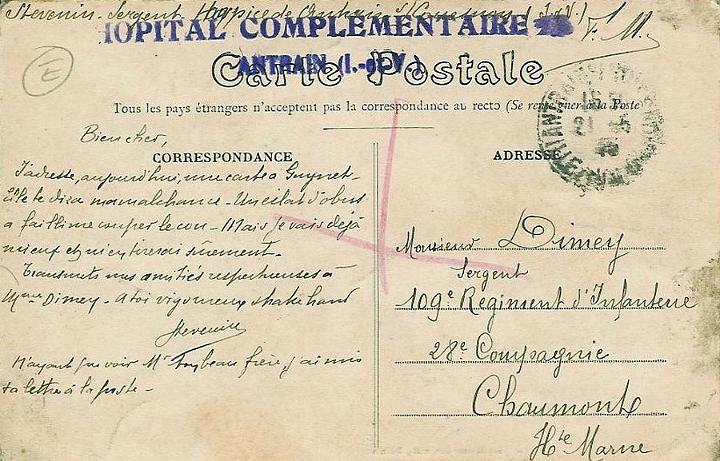 Stevenin - Sergent Hospice de Antrain s/ Couesnon (I-et-V.)
F. M.
HOPITAL COMPLEMENTAIRE
ANTRAIN (I.-et-V.)
Carte Postale
E
Tous les pays étrangers n'acceptent pas la correspondance au recto (Se renseigner à la Poste
CORRESPONDANCE
Bien cher,
J'adresse, aujourd'hui, une carte à Guynet -
Elle te dira ma malchance - Un éclat d'obus
a failli me couper le cou - Mais je vais déjà
mieux et m'en tirerai sûrement -
Transmets mes amitiés respectueuses à
Mme Dimey - A toi vigoureux shake hand
Stevenin
N'ayant pu voir Mr beau frère, j'ai mis
ta lettre à la poste -
ADRESSE
Monsieur Dimey
Sergent
109e Régiment d'Infanterie
28e Compagnie
Chaumont
Hte Marne